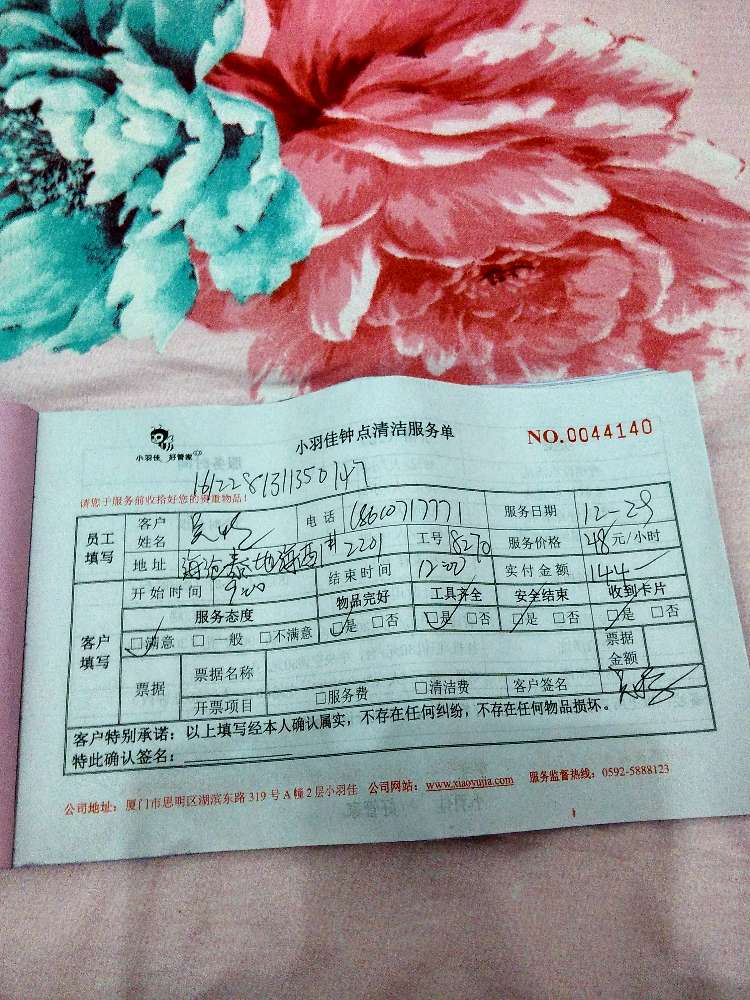 小羽佳 好管家
小羽佳钟点清洁服务单
NO.0044140
1612281311350147
请您于服务前收拾好您的贵重物品!
员工填写 客户姓名 吴 电话 18610717771 服务日期 12-29
地址 海沧泰地海西 2201 工号 18270 服务价格 48元/小时
开始时间 9:00 结束时间 12:00 实付金额 144
客户填写 服务态度 物品完好 工具齐全 安全结束 收到卡片
□满意 □一般 □不满意 □是 □否 □是 □否 □是 □否 □是 □否
票据 票据名称 票据金额
开票项目 □服务费 □清洁费 客户签名
客户特别承诺:以上填写经本人确认属实,不存在任何纠纷,不存在任何物品损坏。
特此确认签名:
公司地址:厦门市思明区湖滨东路319号A幢2层小羽佳 公司网站:www.xiaoyujia.com 服务监督热线:0592-5888123